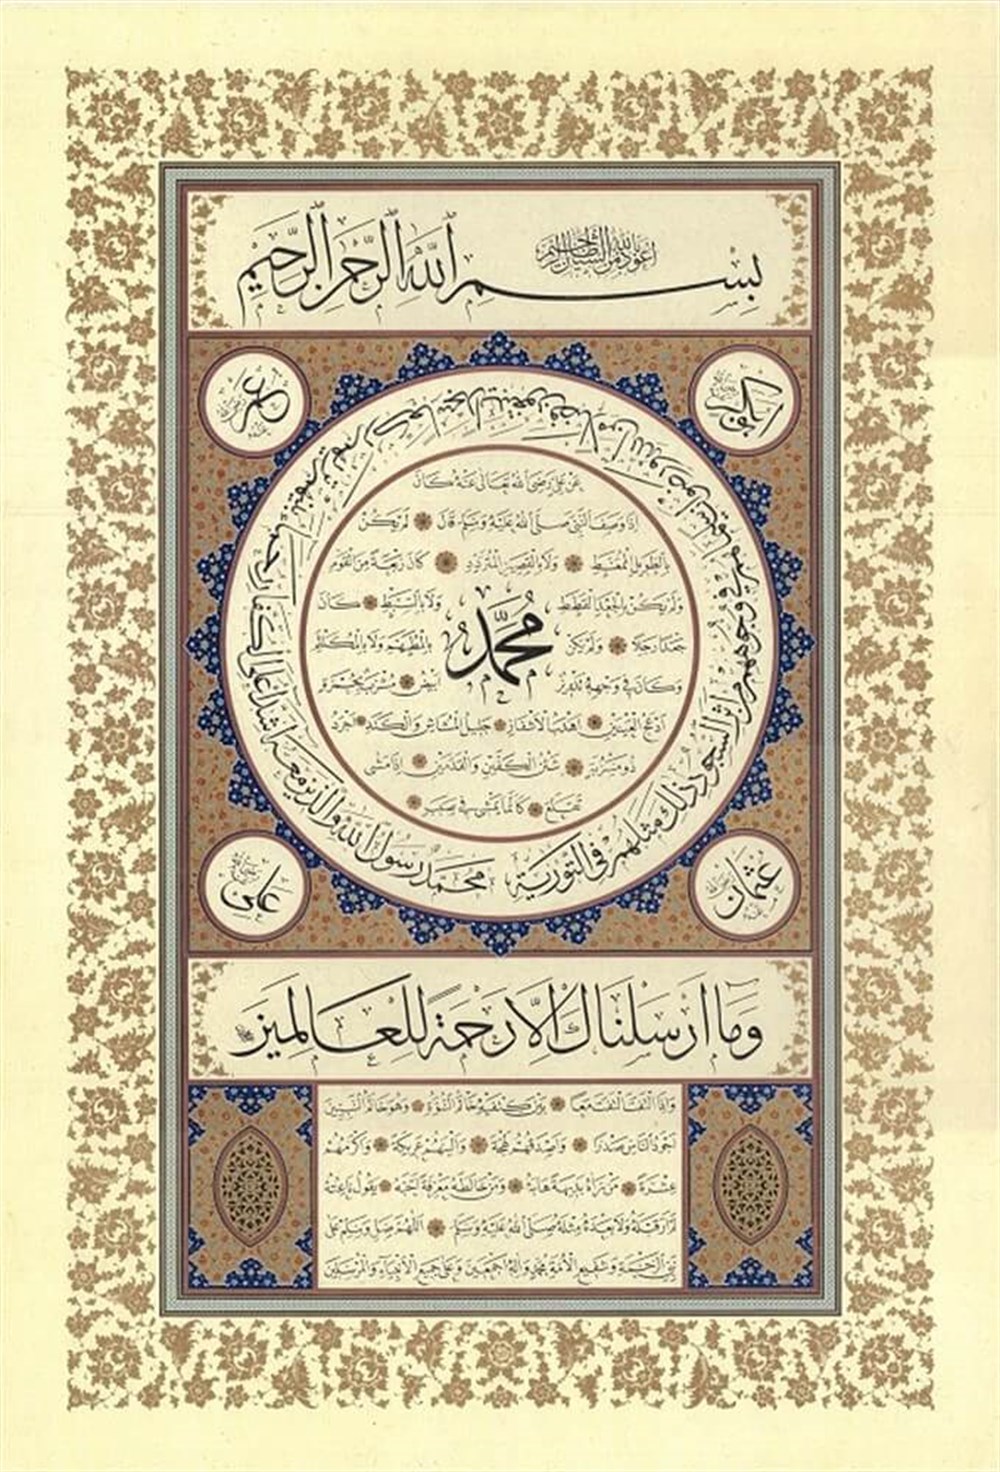 اعوذ بالله من الشيطان الرجيم
بِسْمِ اللّٰهِ الرَّحْمٰنِ الرَّحِيمِ
ابوبكر
عمر
محمد رسول الله والذين معه اشداء على الكفار رحماء بينهم تريهم ركعا سجدا يبتغون فضلا من الله ورضوانا سيماهم في وجوههم من اثر السجود ذلك مثلهم في التورية
عَنْ عَلِيٍّ رَضِيَ اللهُ تَعَالٰى عَنْهُ كَانَ
اِذَا وَصَفَ النَّبِيَّ صَلَّى اللهُ عَلَيْهِ وَسَلَّمَ قَالَ لَمْ يَكُنْ
بِالطَّوِيلِ الْمُمَّغِطِ وَلَا بِالْقَصِيرِ الْمُتَرَدِّدِ كَانَ رَبْعَةً مِنَ الْقَوْمِ
وَلَمْ يَكُنْ بِالْجَعْدِ الْقَطَطِ وَلَا بِالسَّبْطِ كَانَ
جَعْدًا رَجِلًا وَلَمْ يَكُنْ بِالْمُطَهَّمِ وَلَا بِالْمُكَلْثَمِ
مُحَمَّد
وَكَانَ فِي وَجْهِهِ تَدْوِيرٌ اَبْيَضُ مُشْرَبٌ بِحُمْرَةٍ
اَدْعَجُ الْعَيْنَيْنِ اَهْدَبُ الْاَشْفَارِ جَلِيلُ الْمُشَاشِ وَالْكَتَدِ اَجْرَدُ
ذُو مَسْرُبَةٍ شَثْنُ الْكَفَّيْنِ وَالْقَدَمَيْنِ اِذَا مَشٰى
تَقَلَّعَ كَاَنَّمَا يَمْشِي فِي صَبَبٍ
عثمان
علي
وَمَا اَرْسَلْنَاكَ اِلَّا رَحْمَةً لِلْعَالَمِينَ
وَاِذَا الْتَفَتَ الْتَفَتَ مَعًا بَيْنَ كَتِفَيْهِ خَاتَمُ النُّبُوَّةِ وَهُوَ خَاتَمُ النَّبِيِّينَ
اَجْوَدُ النَّاسِ صَدْرًا وَاَصْدَقُهُمْ لَهْجَةً وَاَلْيَنُهُمْ عَرِيكَةً وَاَكْرَمُهُمْ
عِشْرَةً مَنْ رَاٰهُ بَدِيهَةً هَابَهُ وَمَنْ خَالَطَهُ مَعْرِفَةً اَحَبَّهُ يَقُولُ نَاعِتُهُ
لَمْ اَرَ قَبْلَهُ وَلَا بَعْدَهُ مِثْلَهُ صَلَّى اللهُ عَلَيْهِ وَسَلَّمَ اَللّٰهُمَّ صَلِّ وَسَلِّمْ عَلٰى
نَبِيِّ الرَّحْمَةِ وَشَفِيعِ الْاُمَّةِ مُحَمَّدٍ وَاٰلِهِ اَجْمَعِينَ وَعَلٰى جَمِيعِ الْاَنْبِيَاءِ وَالْمُرْسَلِينَ